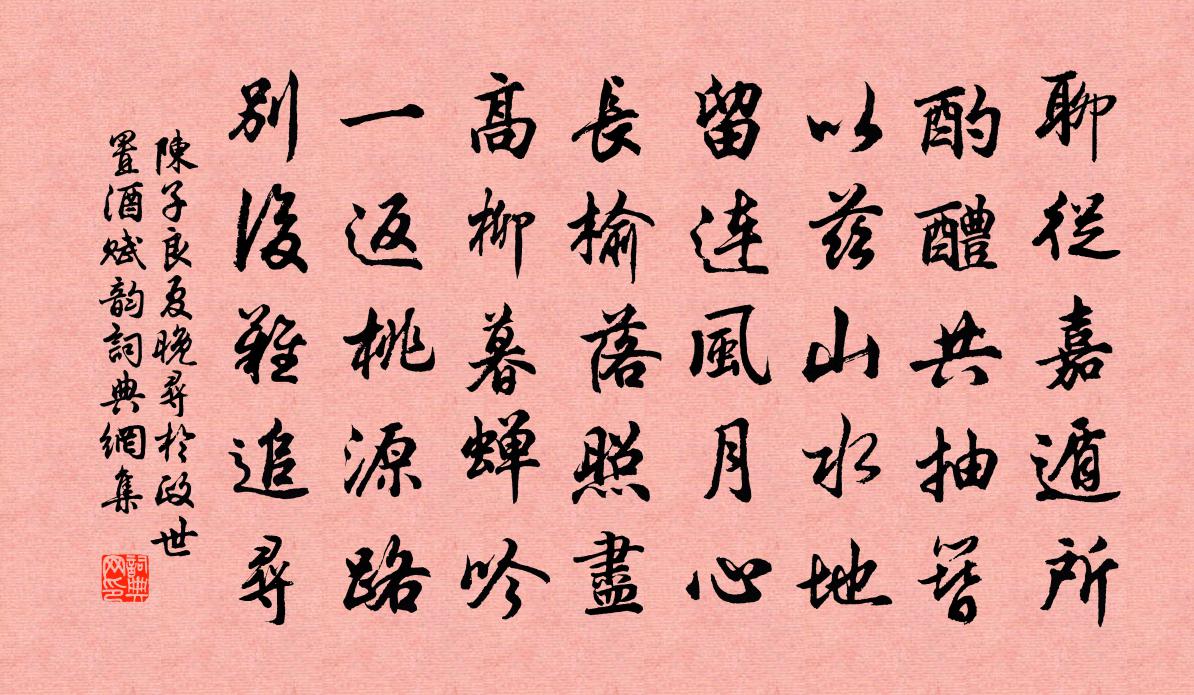 聊従嘉遁所
酌醴共抽簪
以茲山水地
留连風月心
長榆落照盡
高柳暮蝉吟
一返桃源路
別後難追尋
陳子良夏晚尋於政世
置酒赋韵詞典網集
詞典网印